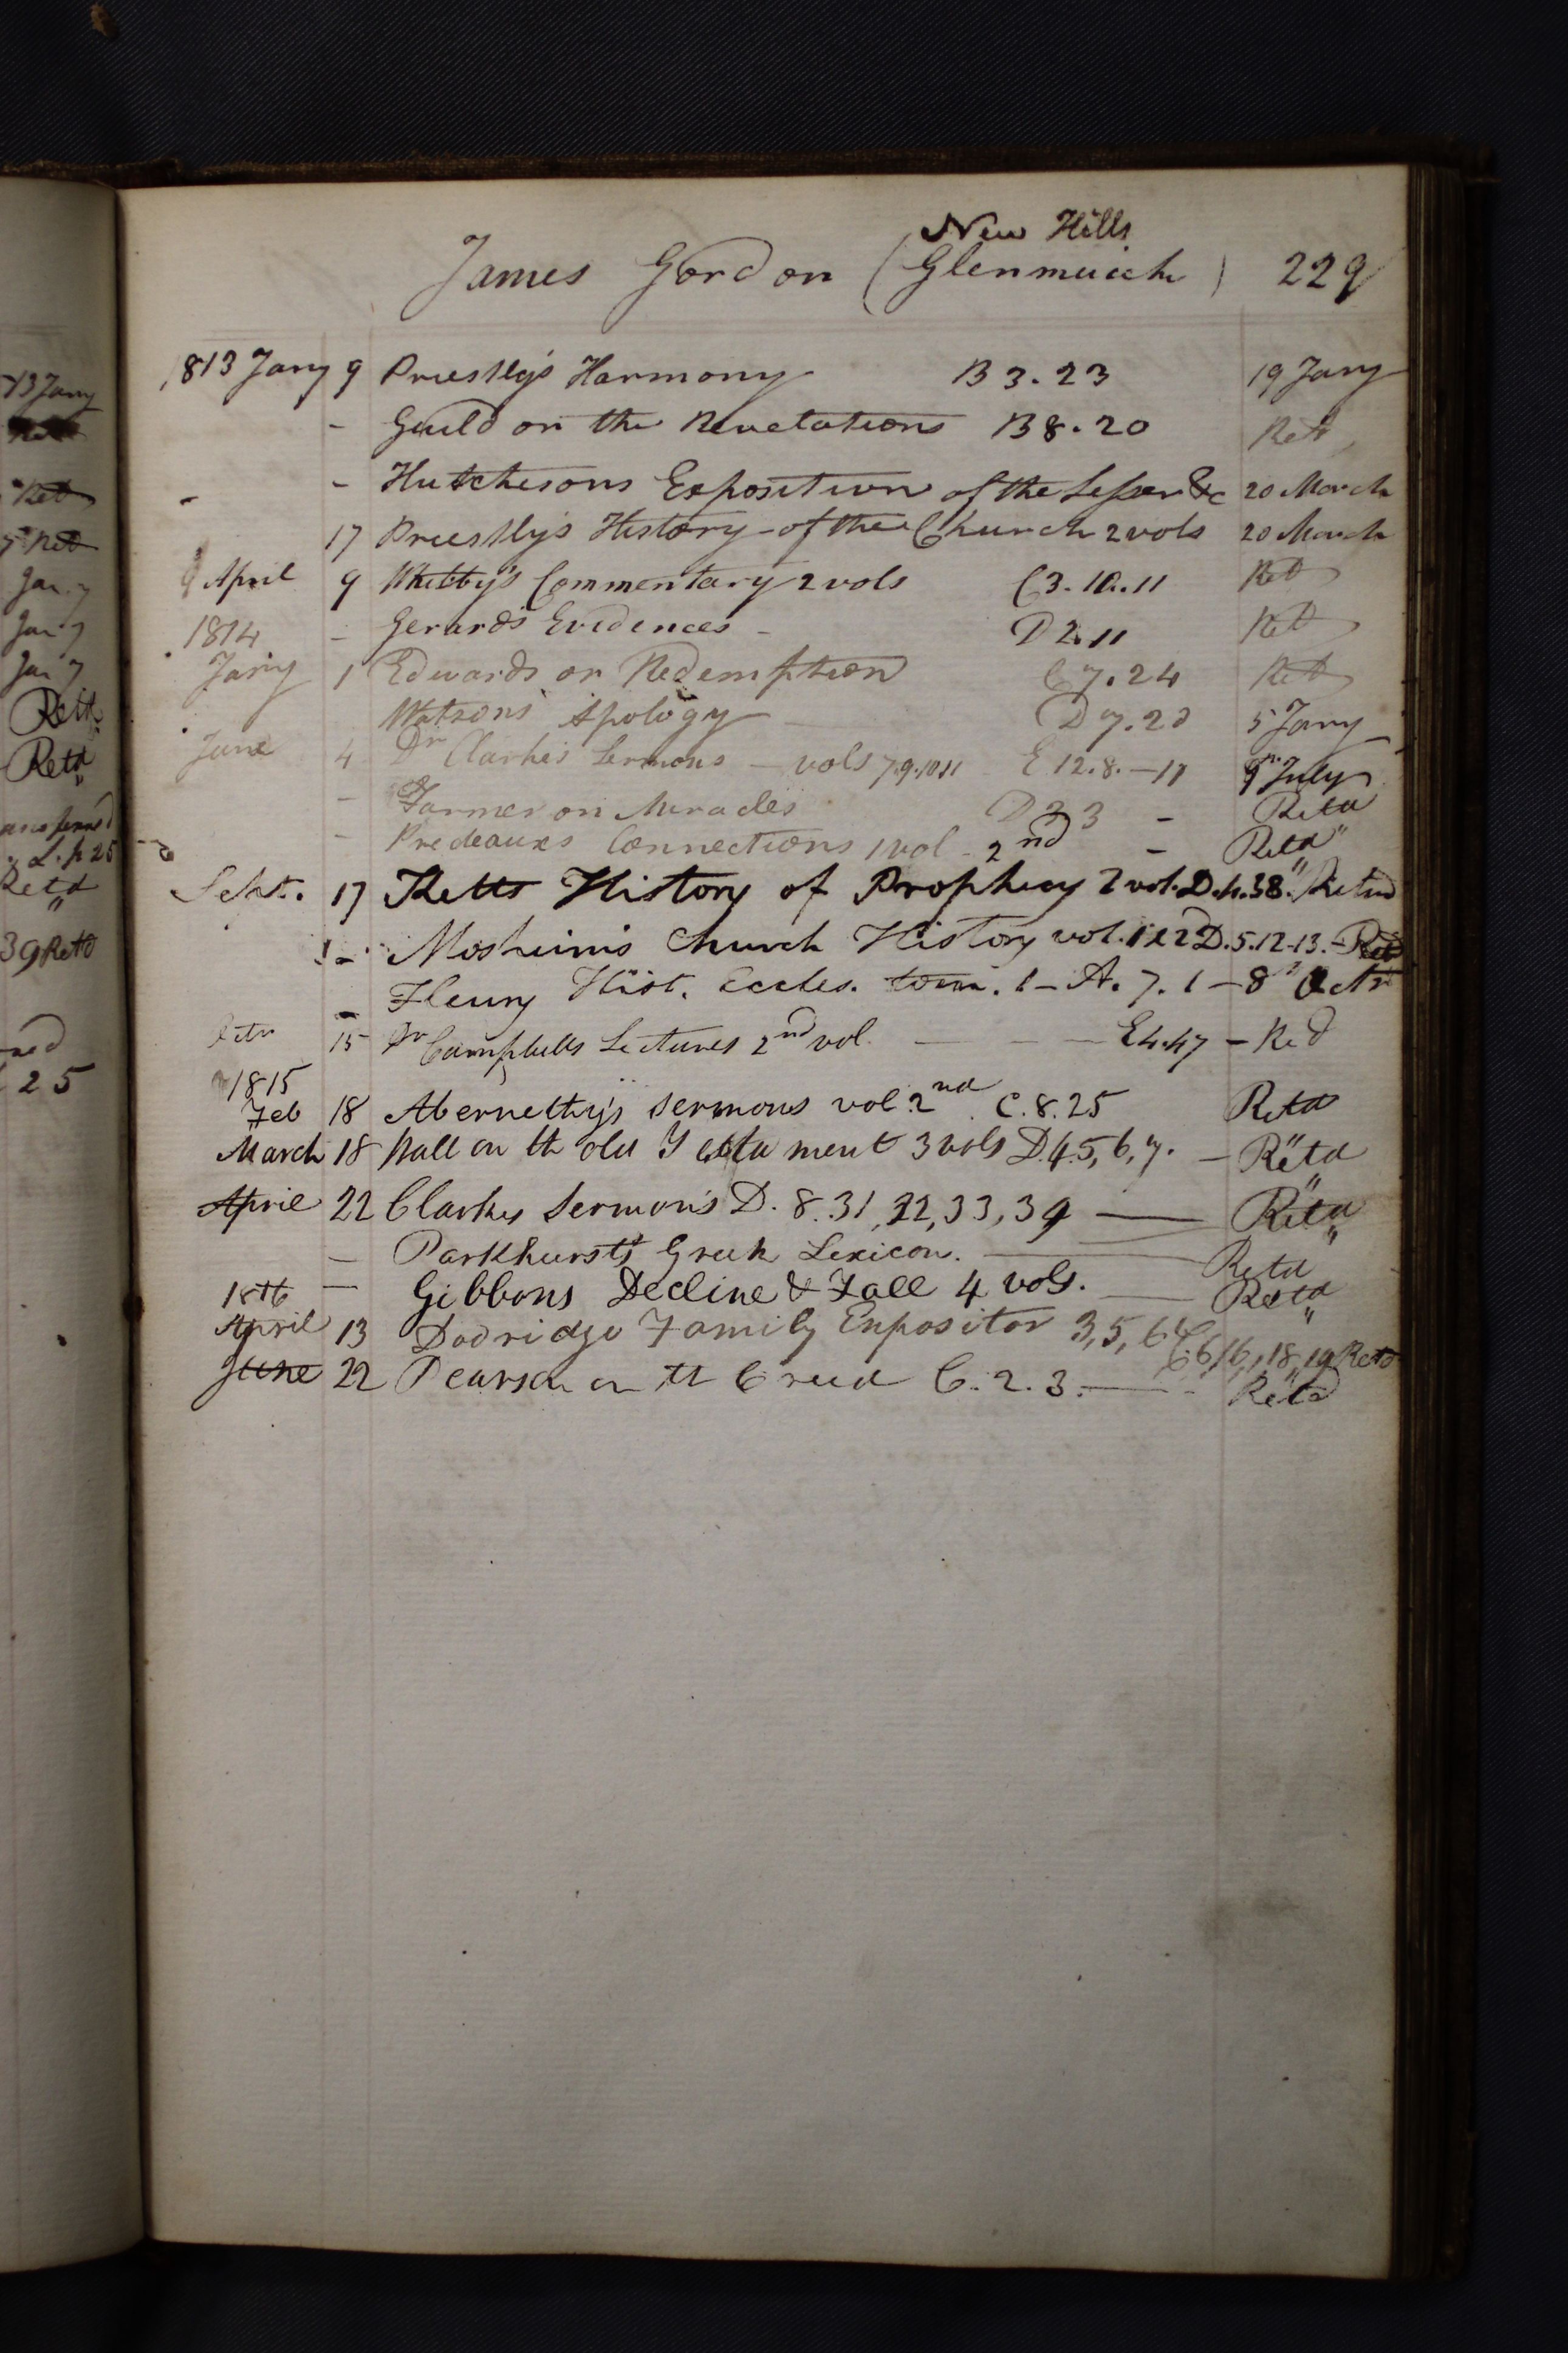 New Hills
James Gordon (Glenmuick) 229
1813 Jany 9 Priestly's Harmony B 3.23 19 Jany
- Guild on the Revelations B 8.20 Retd
- - Hutchesons Exposition of the Lesser &c 20 March
17 Priestly's History of the Church 2 vols 20 March
April 9 Whitby's Commentary 2 vols C 3.10.11 Retd
1814 - Gerards Evidences - D 2.11 Retd
Jany 1 Edwards on Redemption C 7.24 Retd
Watsons Apology D 7.20 5 Jany
June 4 Dr Clarke's Sermons - vols 7.9.10.11 E 12.8.-11 9th July
- Farmer on Miracles D 3 3 - Retd
- Prideauxs Connections 1 vol - 2nd - Retd
Sept. 17 Ketts History of Prophecy 2 vol. D.4.38. Retud
- Mosheim's Church History vol. 1 & 2 D.5.12-13. - Retd
- Fleury Hist. Eccles. tom. 1 - A. 7. 1 - 8 Octr
Octr 15 Dr Campbells Lectures 2nd vol. E4.47 - Red
1815
Feb 18 Abernethy's sermons vol. 2nd C. 8. 25 Retd
March 18 Wall on th old Testament 3 vols D.4.5,6,7. - Retd
April 22 Clarkes Sermons D. 8. 31, 32, 33, 34 Retd
- Parkhursts Greek Lexicon. Retd
1816 - Gibbons Decline & Fall 4 vols. Retd
April 13 Dodridge Family Expositor 3, 5, 6 C. 6, 16, 18, 19 Retd
June 22 Pearson on th Creed C. 2. 3. Retd
13 Jany
Retd
Retd
Retd
Retd
39 Retd
25